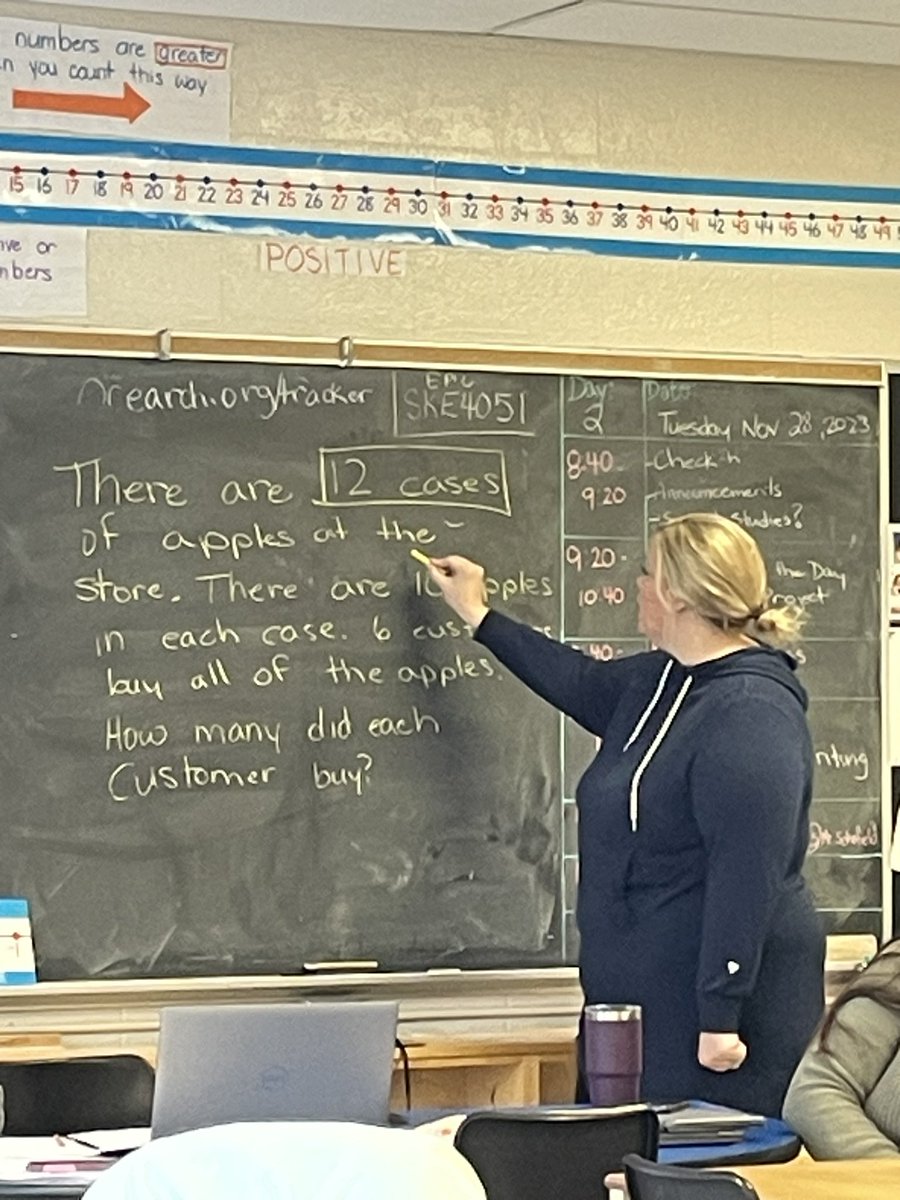 numbers are greater
you count this way
15 16 17 18 19 20 21 22 23 24 25 26 27 28 29 30 31 32 33 34 35 36 37 38 39 40 41 42 43 44 45 46 47 48 49
or
POSITIVE
SKE4051
There are 12 cases
of apples at the
store. There are
in each case. 6
buy all of the apples.
How many did each
Customer buy?
Day:
2
Date:
Tuesday Nov 28, 2023
8:40 -
9:20
-Check in
-Announcements
Studies?
9:20 -
10:40
the Day
Project